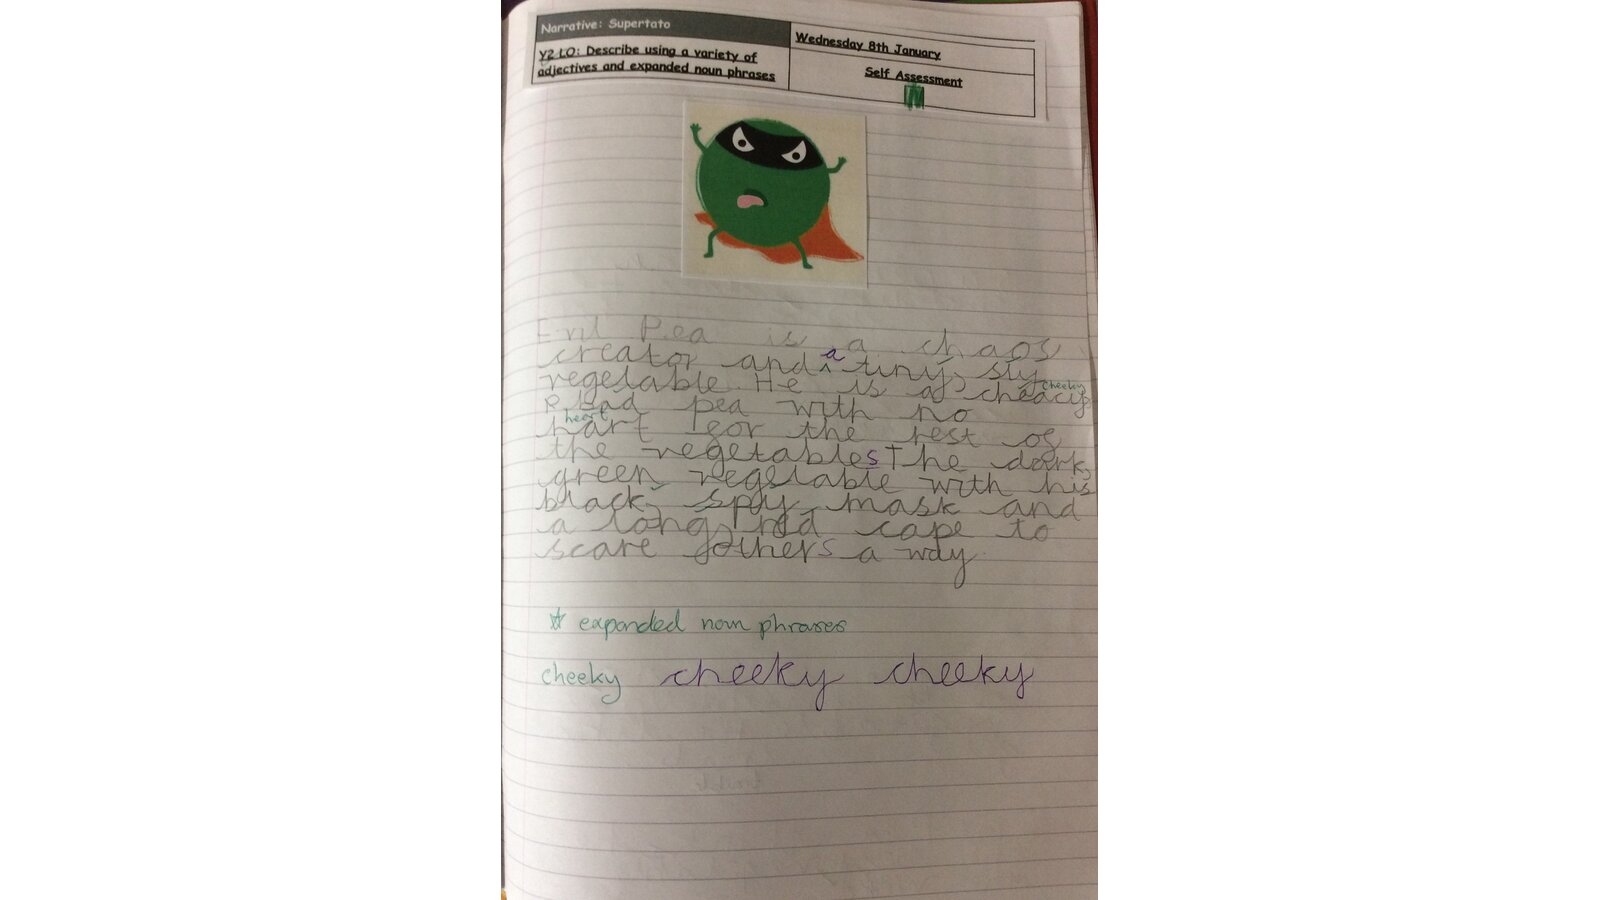 Narrative: Supertato
Y2 LO: Describe using a variety of
adjectives and expanded noun phrases
Wednesday 8th January
Self Assessment
Evil Pea is a chaos
creator and a tiny, sly
vegetable. He is a cheacy cheeky
bad pea with no
hart heart for the rest of
the vegetables The dark,
green vegetable with his
black, spy mask and
a long, red cape to
scare others a way
☆ expanded noun phrases
cheeky cheeky cheeky